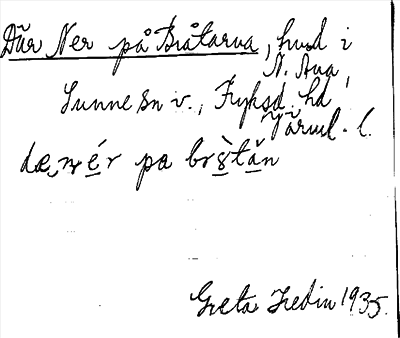 Där Ner på Bråtarna, husd i
N. Ana,
Sunne sn v., Fryksd. hd
Värml. l.
dæ, nér pa brɔ̀tăn
Greta Hedin 1935.